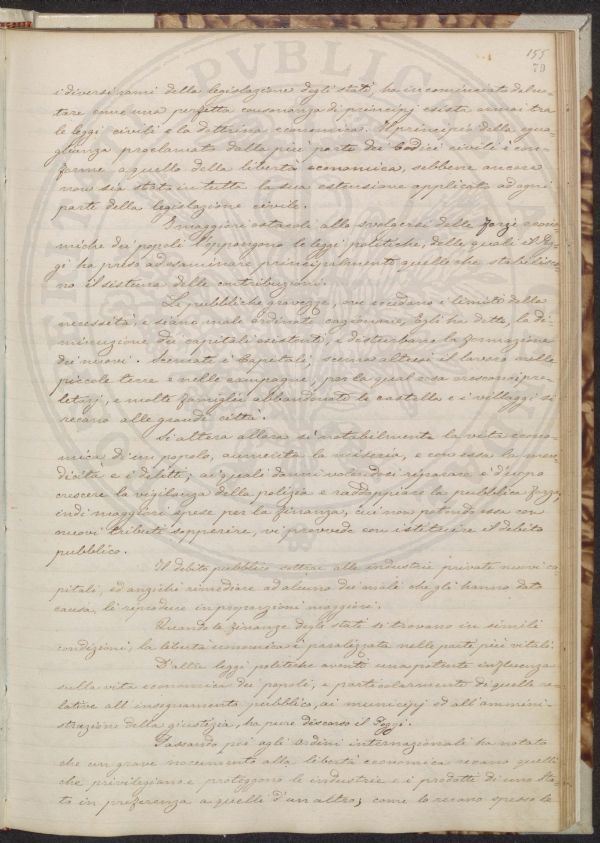 155
79
i diversi rami della legislazione degli stati, ha incominciato dal no-
tare come una perfetta consonanza di principj esista ormai tra
le leggi civili e la dottrina economica. Il principio della egua-
glianza proclamato dalla più parte dei Codici civili è con-
forme a quello della libertà economica, sebbene ancora
non sia stato in tutta la sua estensione applicato ad ogni
parte della legislazione civile.
I maggiori ostacoli allo svolgersi delle forze econo-
miche dei popoli l'oppongono le leggi politiche, delle quali il Pog-
gi ha preso ad esaminare principalmente quelle che stabilisco-
no il sistema delle contribuzioni.
Le pubbliche gravezze, ove eccedano i limiti della
necessità, e siano male ordinate cagionano, Egli ha detto, la di-
minuzione dei capitali esistenti, e disturbano la formazione
dei nuovi. Scemati i Capitali scema altresì il lavoro nelle
piccole terre e nelle campagne, per la qual cosa crescono i pro-
letarj, e molte famiglie abbandonate le castella e i villaggi si
recano alle grandi città.
Si altera allora sì notabilmente la vita econo-
mica di un popolo, aumenta la miseria, e con essa la men-
dicità e i delitti; ai quali danni volendosi riparare è d'uopo
crescere la vigilanza della polizia e raddoppiare la pubblica forza,
indi maggiori spese per la finanza, cui non potendo essa con
nuovi tributi sopperire, vi provvede con istituire il debito
pubblico.
Il debito pubblico sottrae alle industrie private nuovi ca-
pitali, ed anzichè rimediare ad alcuno dei mali che gli hanno dato
causa, li riproduce in proporzioni maggiori.
Quando le finanze degli stati si trovano in simili
condizioni, la libertà economica è paralizzata nelle parti più vitali.
D'altre leggi politiche aventi una potente influenza
sulla vita economica dei popoli, e particolarmente di quelle re-
lative all'insegnamento pubblico, ai municipj ed all'ammini-
strazione della giustizia, ha pure discorso il Poggi.
Passando poi agli ordini internazionali ha notato
che un grave nocumento alla libertà economica recano quelli
che privilegiano e proteggono le industrie e i prodotti di uno Sta-
to in preferenza a quelli d'un altro; come lo recano spesso le